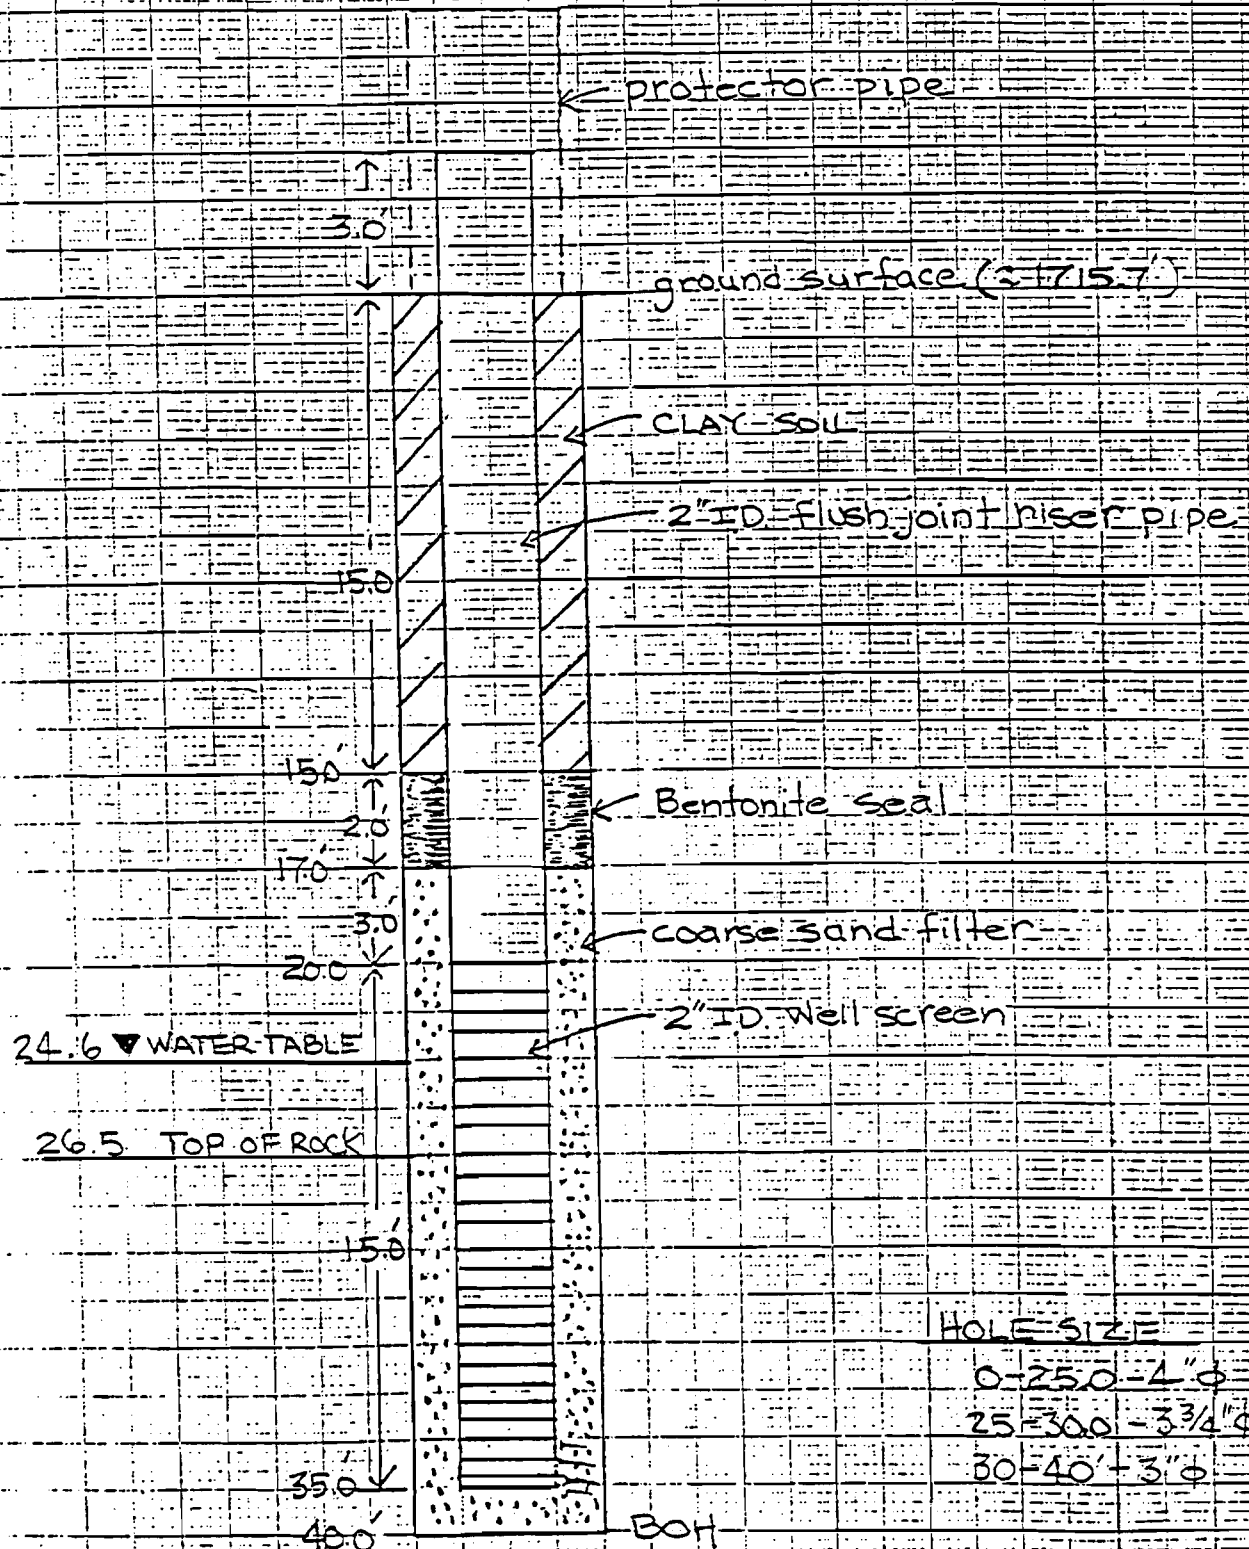 protector pipe
3.0'
ground surface (≈1715.7')
CLAY SOIL
2" ID flush joint riser pipe
15.0
15.0'
2.0'
Bentonite seal
17.0'
3.0'
coarse sand filter
20.0
2" ID Well screen
24.6 ▼ WATER TABLE
26.5 TOP OF ROCK
15.0'
HOLE SIZE
0-25.0 - 4" ϕ
25-30.0 - 3 3/4" ϕ
30-40' - 3" ϕ
35.0'
40.0'
BOH